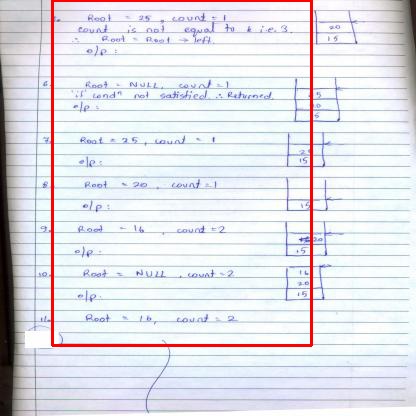 5. Root = 25, count = 1
count is not equal to k i.e. 3.
∴ Root = Root → left.
o/p :
20
15
6. Root = NULL, count = 1
'if' condⁿ not satisfied ∴ Returned.
o/p :
25
20
15
7. Root = 25, count = 1
o/p :
25
15
8. Root = 20, count = 1
o/p :
15
9. Root = 16, count = 2
o/p :
20
15
10. Root = NULL, count = 2
o/p.
16
20
15
11. Root = 16, count = 2